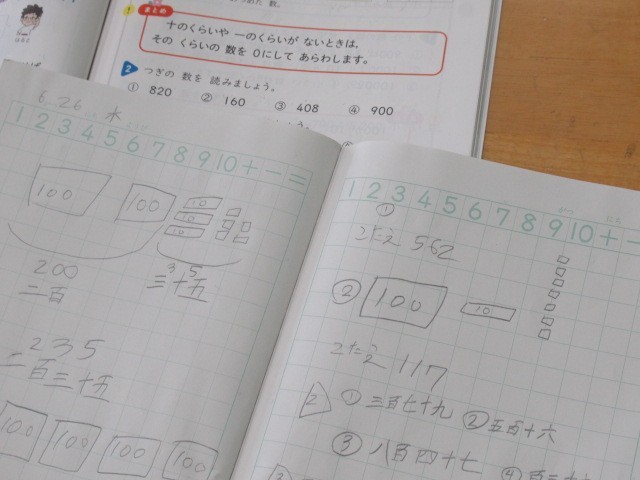 まとめ
十のくらいや 一のくらいが ないときは、
その くらいの 数を 0にして あらわします。
2 つぎの 数を 読みましょう。
① 820 ② 160 ③ 408 ④ 900
6.26 木
1 2 3 4 5 6 7 8 9 10 + − =
100 100 10
10
10
200
二百
3 5
三十五
235
二百三十五
100 100 100 100
1 2 3 4 5 6 7 8 9 10 + −
①
こたえ 562
② 100 10
こたえ 117
2 ① 三百七十九 ② 五百十六
③ 八百四十七
④ 百